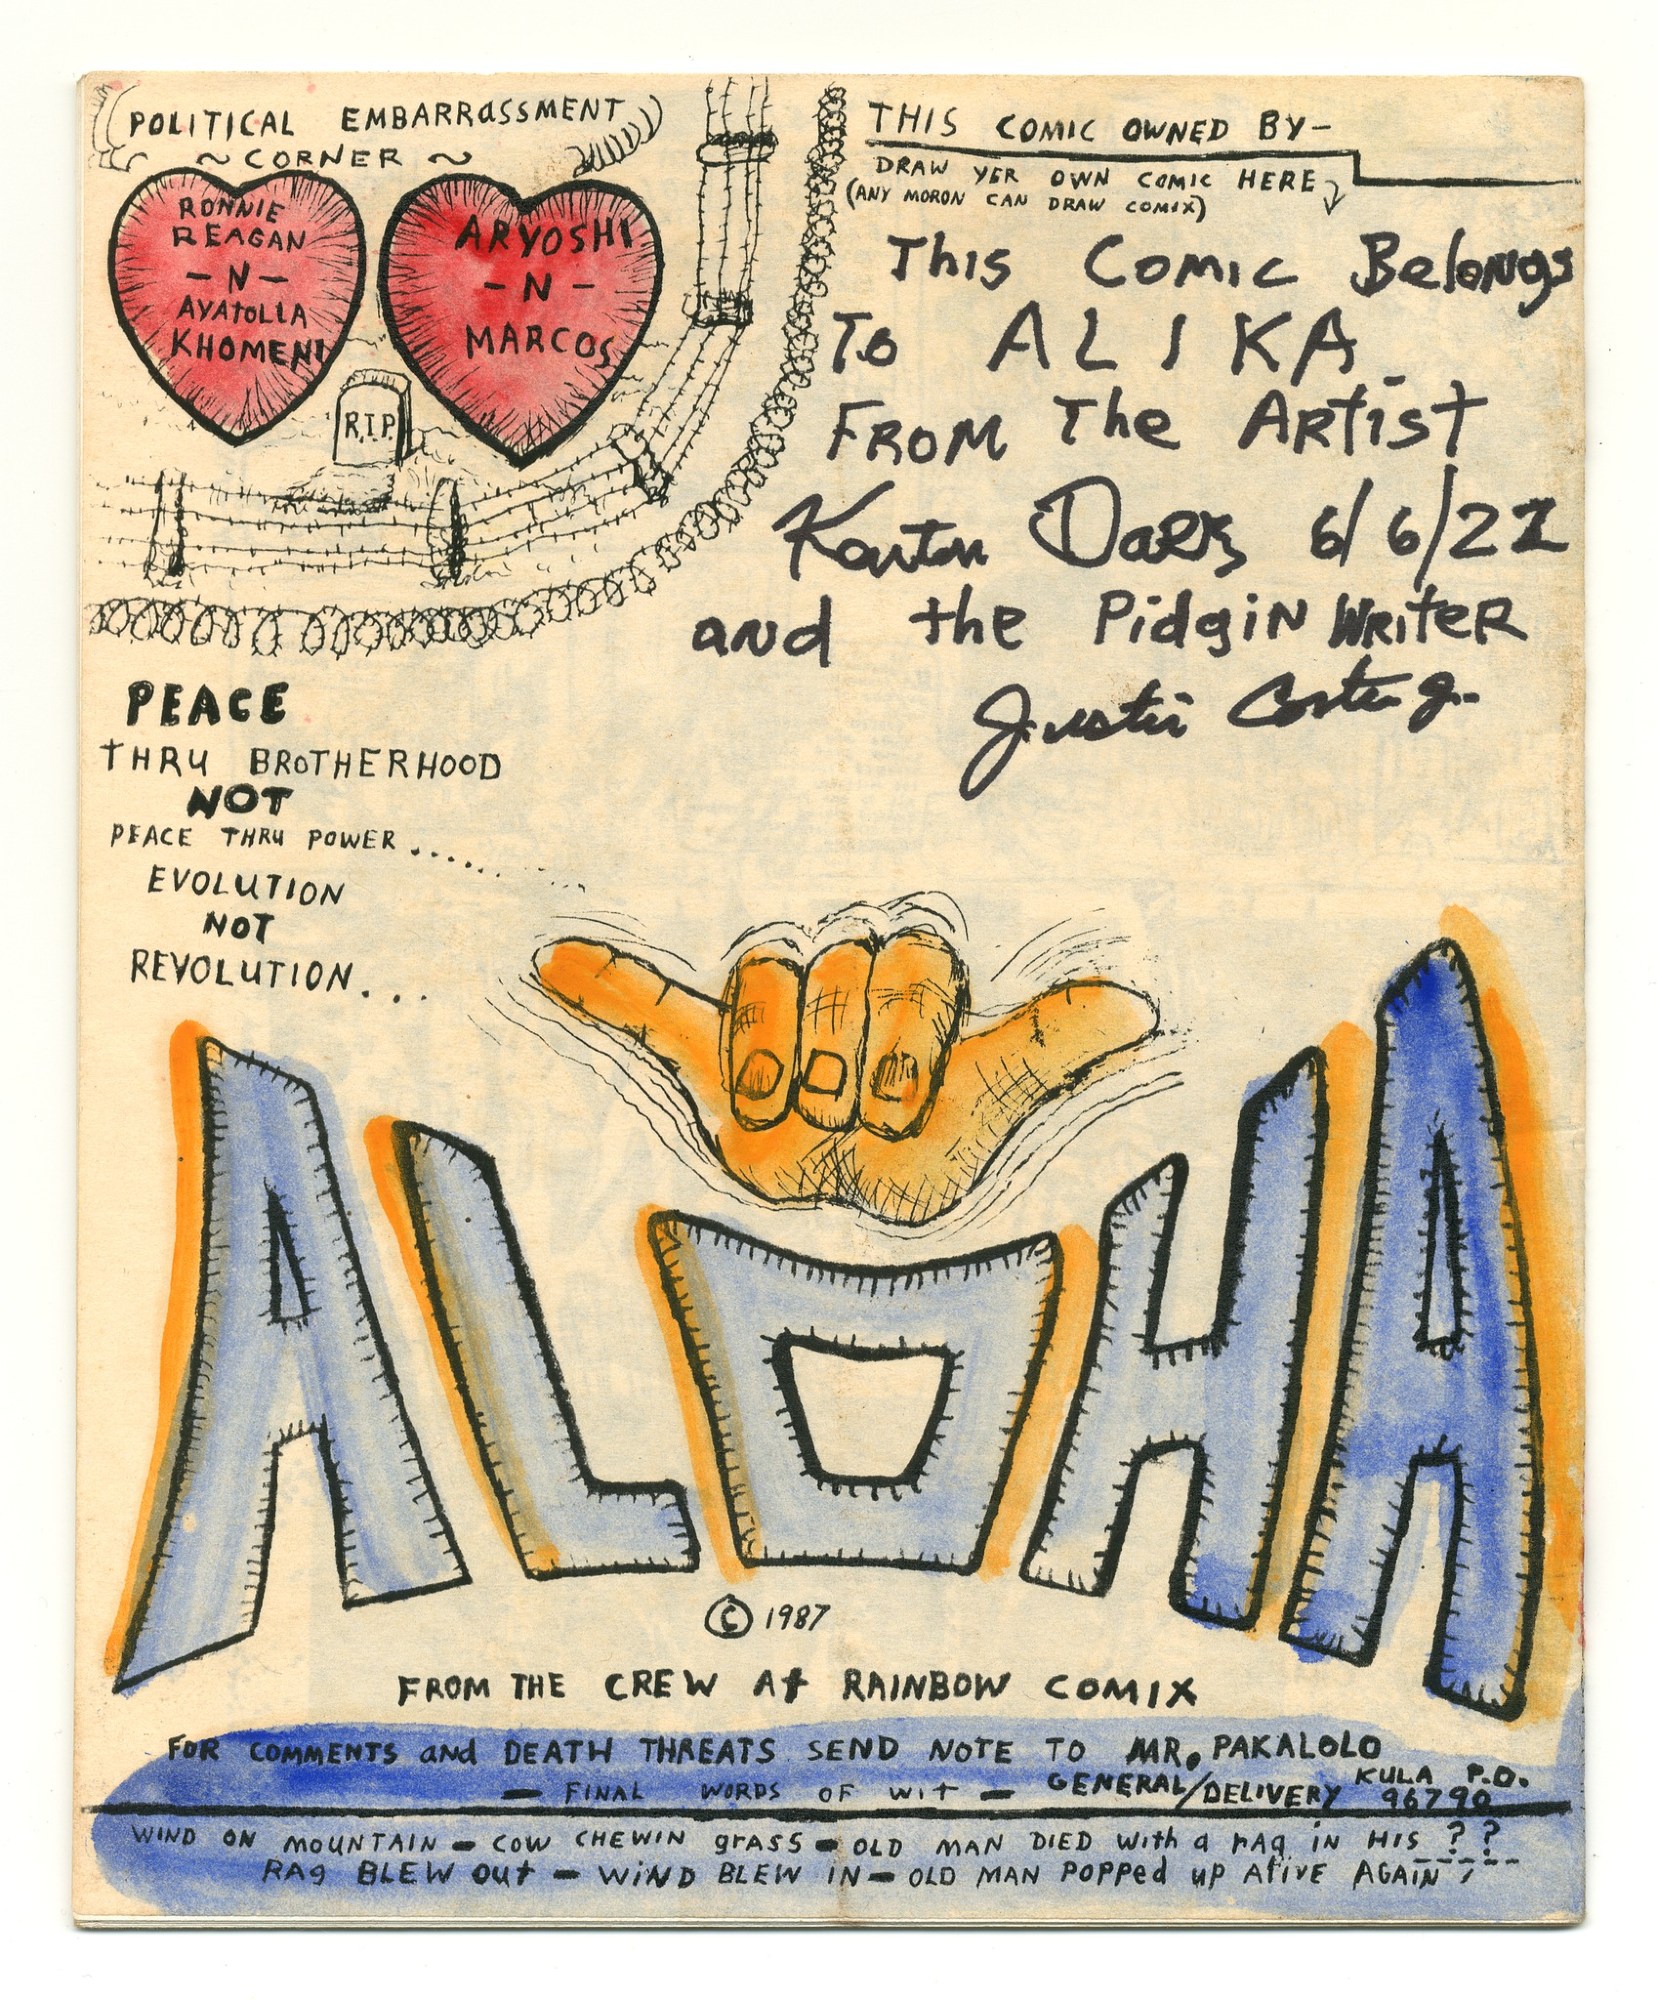 POLITICAL EMBARRASSMENT
~ CORNER ~
RONNIE
REAGAN
- N -
AYATOLLA
KHOMENI
ARYOSHI
- N -
MARCOS
R.I.P.
THIS COMIC OWNED BY-
DRAW YER OWN COMIC HERE
(ANY MORON CAN DRAW COMIX)
This Comic Belongs
To ALIKA
FROM The Artist
Dark 6/6/22
and the Pidgin Writer
Justin
PEACE
THRU BROTHERHOOD
NOT
PEACE THRU POWER.....
EVOLUTION
NOT
REVOLUTION...
ALOHA
© 1987
FROM THE CREW At RAINBOW COMIX
FOR COMMENTS and DEATH THREATS SEND NOTE TO MR. PAKALOLO
GENERAL/DELIVERY KULA P.O. 96790
- FINAL WORDS OF WIT -
WIND ON MOUNTAIN - COW CHEWIN grASS - OLD MAN DIED With a rAg iN HIS ??
RAg BLEW OUt - WiND BLEW IN - OLD MAN POPPED up AliVE AGAIN